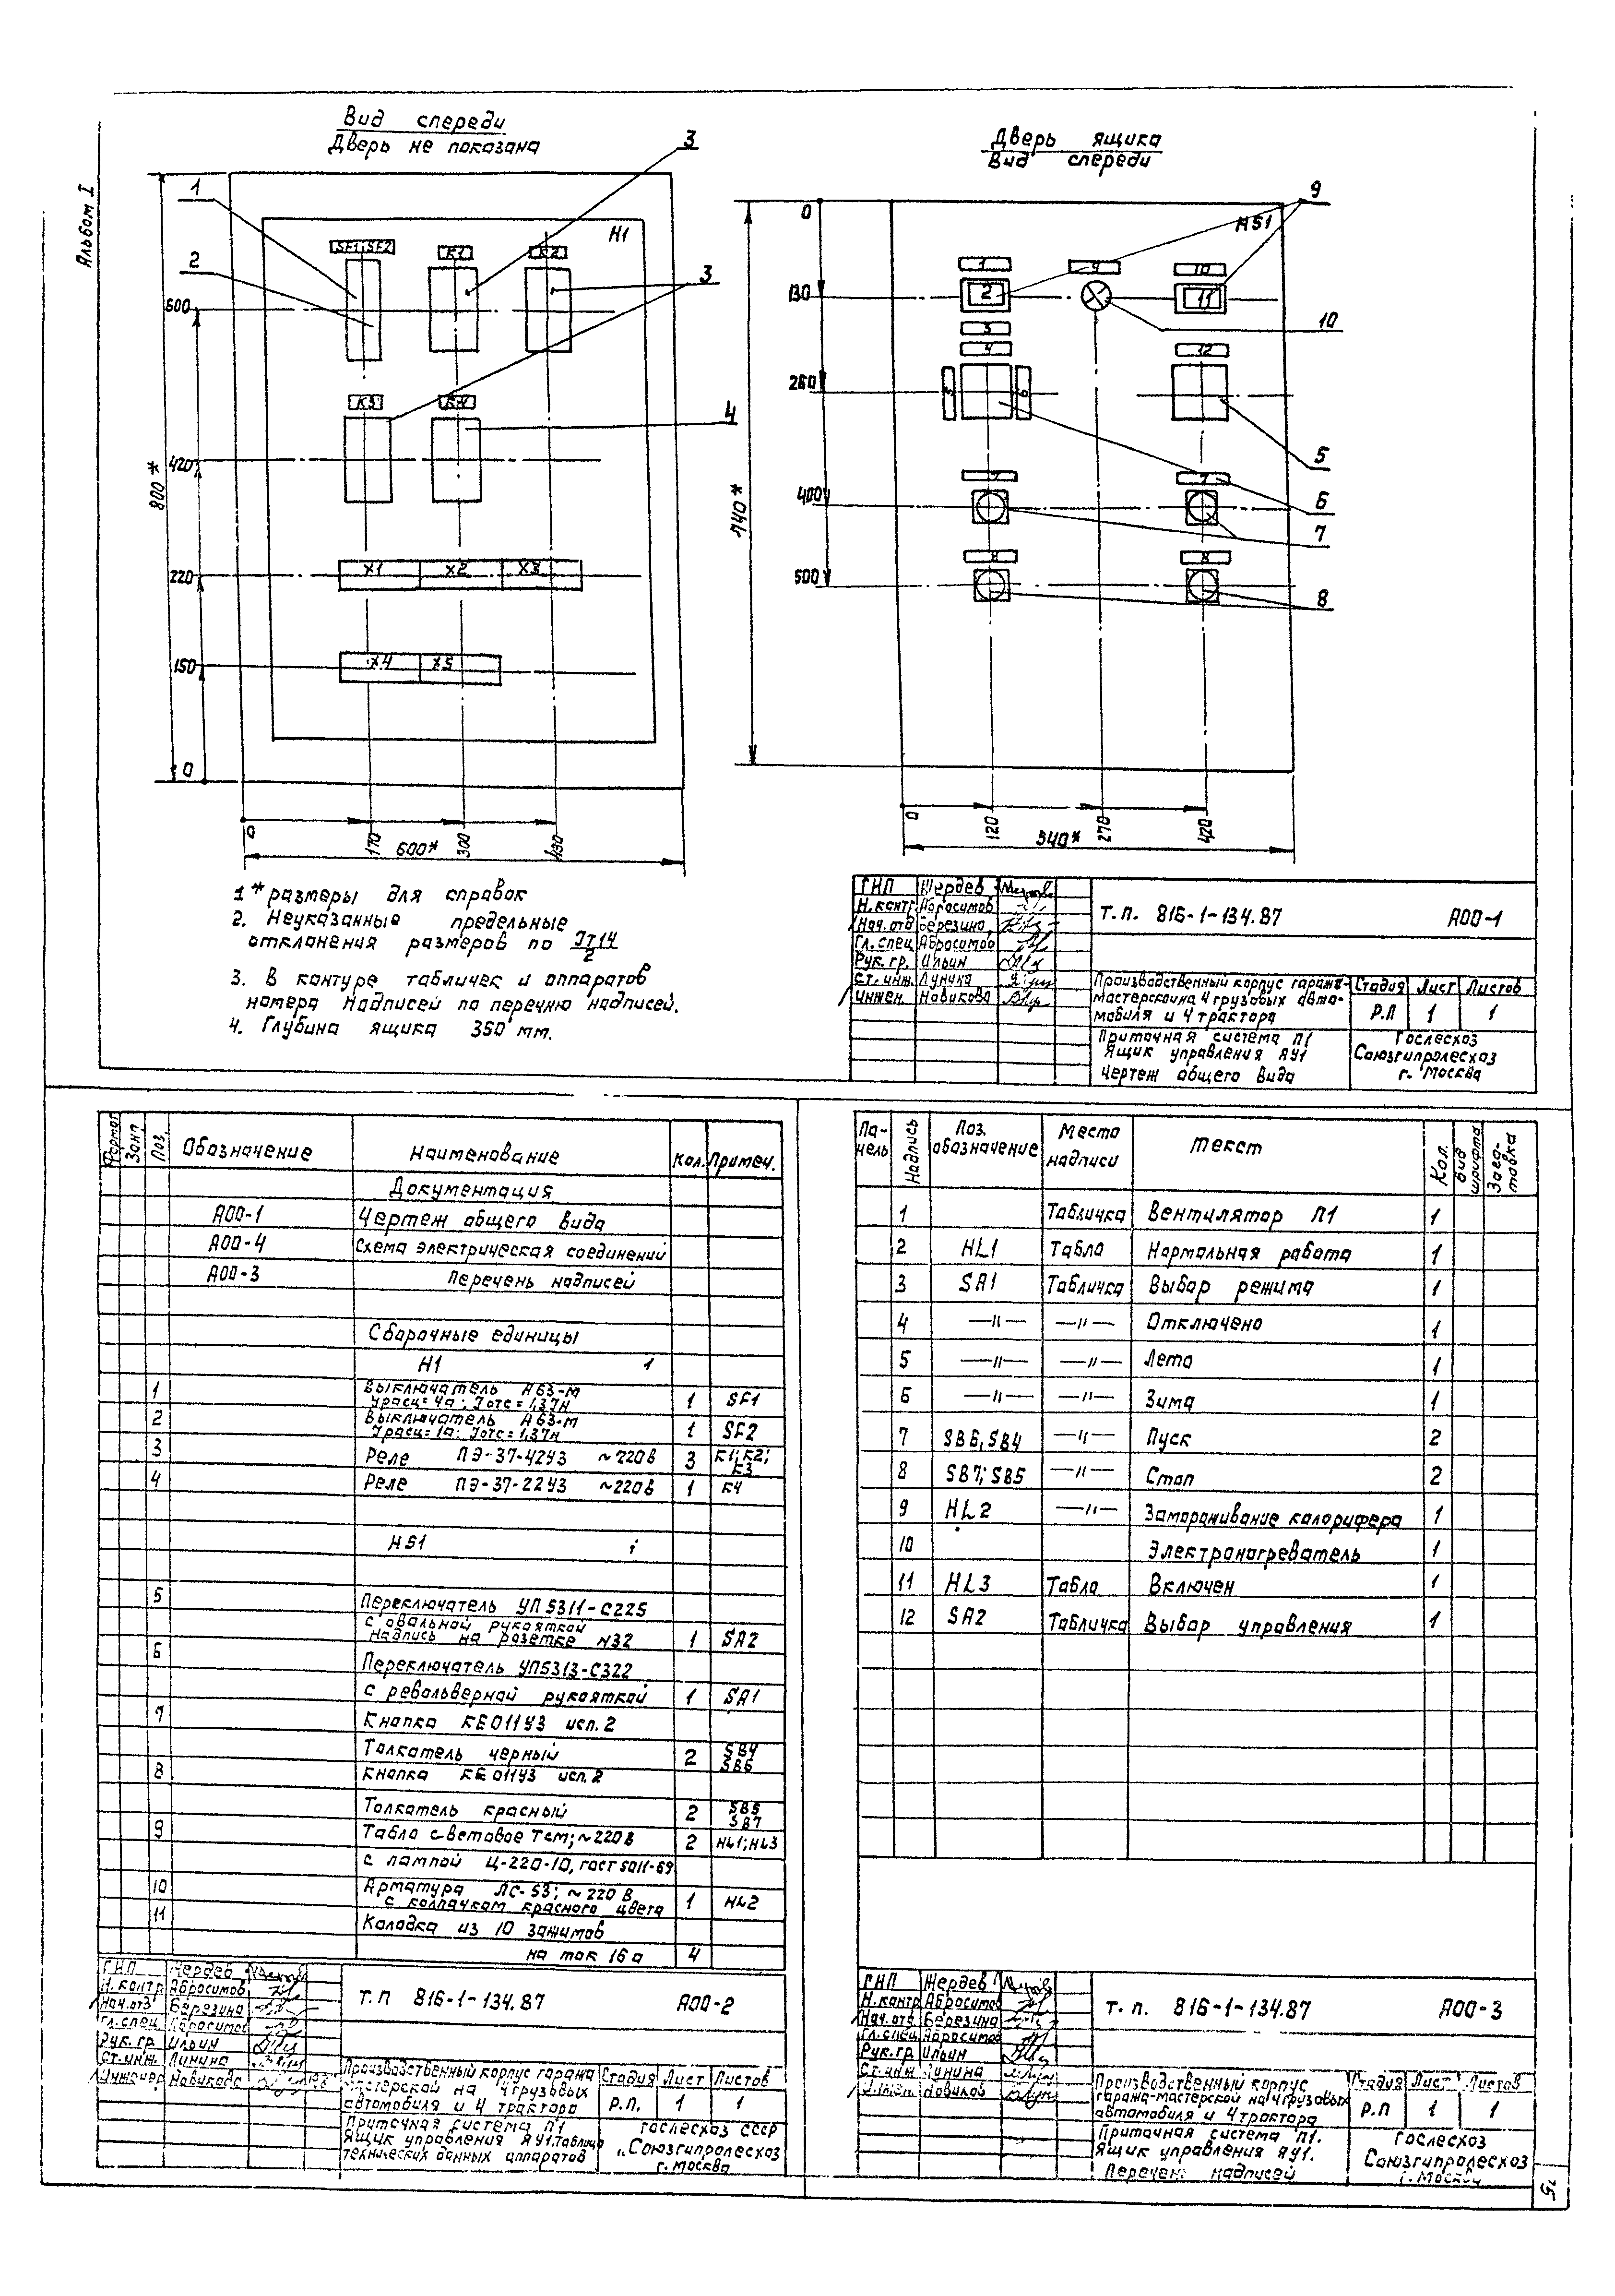 Альбом I
Вид спереди
Дверь не показана
Н1
SF1;SF2
К1
К2
К3
К4
Х1
Х2
Х3
Х4
Х5
1
2
3
3
4
600
420
220
150
0
800*
0
170
300
430
600*
Дверь ящика
Вид спереди
НS1
0
130
260
400
500
740*
1
2
3
4
5
6
7
8
9
10
11
12
7
8
9
10
5
6
7
8
0
120
270
420
540*
1 * размеры для справок
2. Неуказанные предельные
отклонения размеров по IT14/2
3. В контуре табличек и аппаратов
номера надписей по перечню надписей.
4. Глубина ящика 350 мм.
ГИП Жердев
Н.контр. Абросимов
Нач.отд Березина
Гл.спец Абросимов
Рук. гр. Ильин
Ст.инж. Лунина
Инжен. Новикова
Т.п. 816-1-134.87 АОО-1
Производственный корпус гаража-
мастерской на 4 грузовых авто-
мобиля и 4 трактора
Стадия Лист Листов
Р.П 1 1
Приточная система П1
Ящик управления ЯУ1
Чертеж общего вида
Гослесхоз
Союзгипролесхоз
г. Москва
Формат Зона Поз. Обозначение Наименование Кол. Примеч.
Документация
АОО-1 Чертеж общего вида
АОО-4 Схема электрическая соединений
АОО-3 Перечень надписей
Сборочные единицы
Н1 1
1 Выключатель А63-М
Iрасц=4а; Iотс=1,3Iн 1 SF1
2 Выключатель А63-М
Iрасц=1а; Iотс=1,3Iн 1 SF2
3 Реле ПЭ-37-42У3 ~220в 3 К1;К2;
К3
4 Реле ПЭ-37-22У3 ~220в 1 К4
НS1 1
5 Переключатель УП5311-С225
с овальной рукояткой
надпись на розетке н32 1 SA2
6 Переключатель УП5313-С322
с револьверной рукояткой 1 SA1
7 Кнопка КЕ011У3 исп. 2
Толкатель черный 2 SB4
SB6
8 Кнопка КЕ011У3 исп. 2
Толкатель красный 2 SB5
SB7
9 Табло световое Тсм; ~220в 2 HL1;HL3
с лампой Ц-220-10, гост 5011-69
10 Арматура ЛС-53; ~220 В
с колпачком красного цвета 1 HL2
11 Колодка из 10 зажимов
на ток 16а 4
ГИП Жердев
Н.контр Абросимов
Нач.отд Березина
Гл.спец. Абросимов
Рук.гр. Ильин
Ст.инж. Лунина
Инженер Новикова
Т.п 816-1-134.87 АОО-2
Производственный корпус гаража
мастерской на 4 грузовых
автомобиля и 4 трактора
Стадия Лист Листов
Р.П. 1 1
Приточная система П1
Ящик управления ЯУ1. Таблица
технических данных аппаратов
Гослесхоз СССР
„Союзгипролесхоз
г. Москва
Па-
нель Надпись Поз.
обозначение Место
надписи Текст Кол. Вид
шрифта Заго-
товка
1 Табличка Вентилятор П1 1
2 HL1 Табло Нормальная работа 1
3 SA1 Табличка Выбор режима 1
4 —"— —"— Отключено 1
5 —"— —"— Лето 1
6 —"— —"— Зима 1
7 SB6,SB4 —"— Пуск 2
8 SB7;SB5 —"— Стоп 2
9 HL2 —"— Замораживание калорифера 1
10 Электронагреватель 1
11 HL3 Табло Включен 1
12 SA2 Табличка Выбор управления 1
ГИП Жердев
Н.контр Абросимов
Нач.отд Березина
Гл.спец Абросимов
Рук.гр Ильин
Ст.инж Лунина
Новикова
т. п. 816-1-134.87 АОО-3
Производственный корпус
гаража-мастерской на 4 грузовых
автомобиля и 4 трактора
Стадия Лист Листов
Р.П 1 1
Приточная система П1.
Ящик управления ЯУ1.
Перечень надписей
Гослесхоз
Союзгипролесхоз
г. Москва